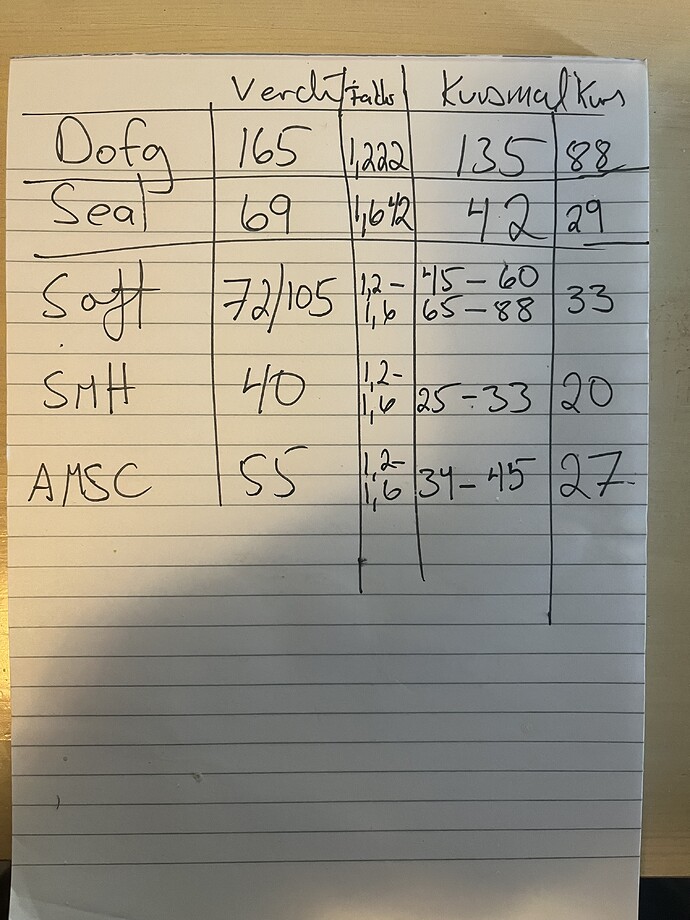 Verdi Faktor Kursmal Kurs
Dofg 165 1,222 135 88
Seal 69 1,642 42 29
Soft 72/105 1,2- 45-60 33
1,6 65-88
SMH 40 1,2- 25-33 20
1,6
AMSC 55 1,2- 34-45 27
1,6